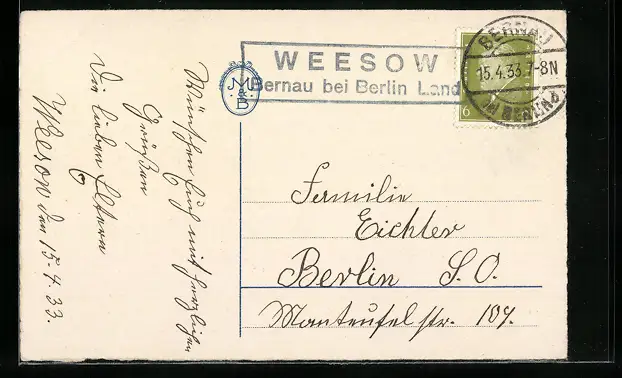 WEESOW
Bernau bei Berlin Land
BERNAU
15.4.33.7-8N
6
M & B
Familie
Eichler
Berlin S.O.
Manteufelstr. 107.
Wünschen Euch mit herzlichen
Grüßen
Die lieben Eltern
Weesow den 15.4.33.